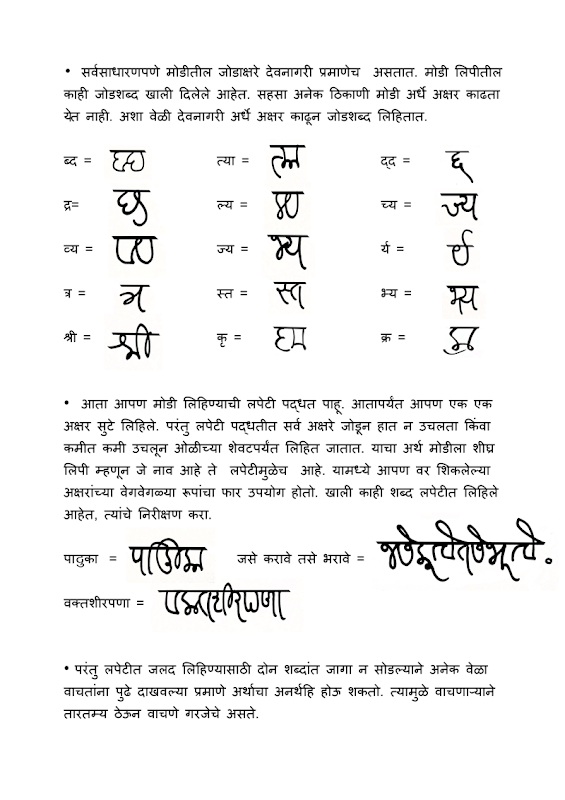 • सर्वसाधारणपणे मोडीतील जोडाक्षरे देवनागरी प्रमाणेच असतात. मोडी लिपीतील
काही जोडशब्द खाली दिलेले आहेत. सहसा अनेक ठिकाणी मोडी अर्धे अक्षर काढता
येत नाही. अशा वेळी देवनागरी अर्धे अक्षर काढून जोडशब्द लिहितात.
ब्द = त्या = द्द =
द्र= ल्य = च्य =
व्य = ज्य = र्य =
त्र = स्त = भ्य =
श्री = कृ = क्र =
• आता आपण मोडी लिहिण्याची लपेटी पद्धत पाहू. आतापर्यंत आपण एक एक
अक्षर सुटे लिहिले. परंतु लपेटी पद्धतीत सर्व अक्षरे जोडून हात न उचलता किंवा
कमीत कमी उचलून ओळीच्या शेवटपर्यंत लिहित जातात. याचा अर्थ मोडीला शीघ्र
लिपी म्हणून जे नाव आहे ते लपेटीमुळेच आहे. यामध्ये आपण वर शिकलेल्या
अक्षरांच्या वेगवेगळ्या रूपांचा फार उपयोग होतो. खाली काही शब्द लपेटीत लिहिले
आहेत, त्यांचे निरीक्षण करा.
पादुका = जसे करावे तसे भरावे =
वक्तशीरपणा =
• परंतु लपेटीत जलद लिहिण्यासाठी दोन शब्दांत जागा न सोडल्याने अनेक वेळा
वाचतांना पुढे दाखवल्या प्रमाणे अर्थाचा अनर्थहि होऊ शकतो. त्यामुळे वाचणाऱ्याने
तारतम्य ठेऊन वाचणे गरजेचे असते.